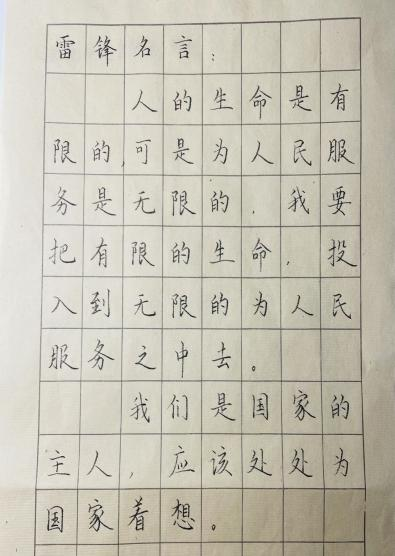 雷锋名言:
人的生命是有
限的,可是为人民服
务是无限的,我要
把有限的生命,投
入到无限的为人民
服务之中去。
我们是国家的
主人,应该处处为
国家着想。